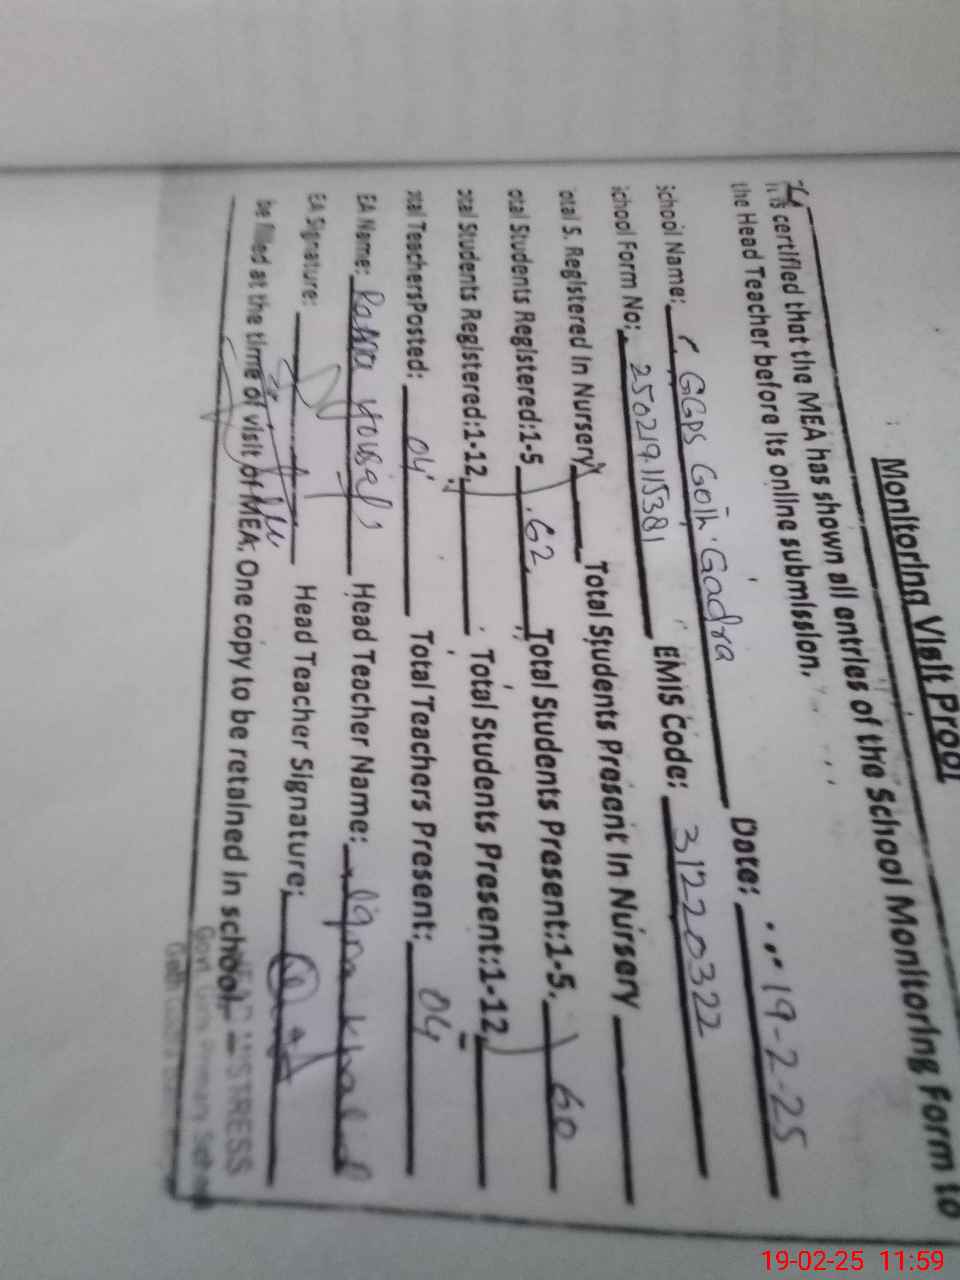 Monitoring Visit Proof
It is certified that the MEA has shown all entries of the School Monitoring Form to
the Head Teacher before its online submission.
Date: 19-2-25
chool Name: GGPS Goth Gadra
chool Form No: 250219115381 EMIS Code: 31220322
otal S. Registered In Nursery Total Students Present In Nursery
otal Students Registered:1-5 62 Total Students Present:1-5. 60
otal Students Registered:1-12 Total Students Present:1-12
otal TeachersPosted: 04 Total Teachers Present: 04
EA Name: Rana Yousaf Head Teacher Name: Iqra Khalid
EA Signature: Head Teacher Signature:
be filled at the time of visit of MEA. One copy to be retained in school.
MISTRESS
Govt. Girls Primary School
19-02-25 11:59